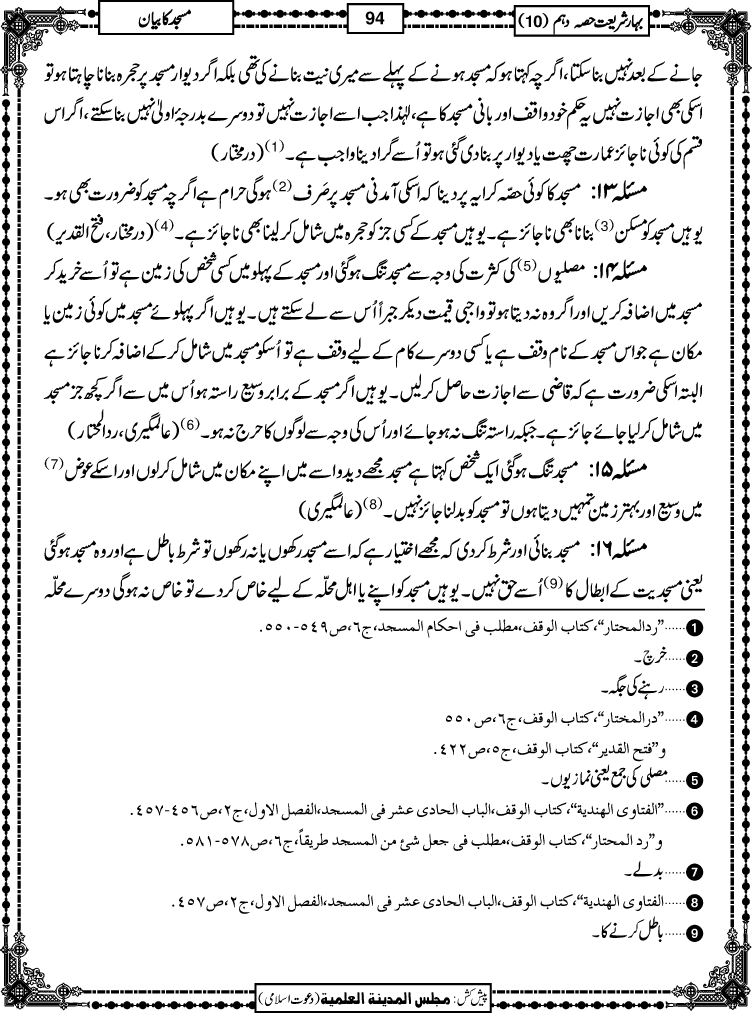 بہارِ شریعت حصہ دہم (10)
94
مسجد کا بیان
جانے کے بعد نہیں بنا سکتا، اگرچہ کہتا ہو کہ مسجد ہونے کے پہلے سے میری نیت بنانے کی تھی بلکہ اگر دیوارِ مسجد پر حجرہ بنانا چاہتا ہو تو
اسکی بھی اجازت نہیں یہ حکم خود واقف اور بانی مسجد کا ہے، لہٰذا جب اسے اجازت نہیں تو دوسرے بدرجۂ اولیٰ نہیں بنا سکتے، اگر اس
قسم کی کوئی ناجائز عمارت چھت یا دیوار پر بنادی گئی ہو تو اُسے گرادینا واجب ہے۔(1) (درمختار)
مسئلہ ۱۳: مسجد کا کوئی حصہ کرایہ پر دینا کہ اسکی آمدنی مسجد پر صَرف(2) ہوگی حرام ہے اگرچہ مسجد کو ضرورت بھی ہو۔
یوہیں مسجد کو مسکن(3) بنانا بھی ناجائز ہے۔ یوہیں مسجد کے کسی جز کو حجرہ میں شامل کرلینا بھی ناجائز ہے۔(4) (درمختار، فتح القدیر)
مسئلہ ۱۴: مصلیوں(5) کی کثرت کی وجہ سے مسجد تنگ ہوگئی اور مسجد کے پہلو میں کسی شخص کی زمین ہے تو اُسے خرید کر
مسجد میں اضافہ کریں اور اگر وہ نہ دیتا ہو تو واجبی قیمت دیکر جبراً اُس سے لے سکتے ہیں۔ یوہیں اگر پہلوئے مسجد میں کوئی زمین یا
مکان ہے جو اس مسجد کے نام وقف ہے یا کسی دوسرے کام کے لیے وقف ہے تو اُسکو مسجد میں شامل کرکے اضافہ کرنا جائز ہے
البتہ اسکی ضرورت ہے کہ قاضی سے اجازت حاصل کرلیں۔ یوہیں اگر مسجد کے برابر وسیع راستہ ہو اُس میں سے اگر کچھ جز مسجد
میں شامل کرلیا جائے جائز ہے۔ جبکہ راستہ تنگ نہ ہوجائے اور اُس کی وجہ سے لوگوں کا حرج نہ ہو۔(6) (عالمگیری، ردالمحتار)
مسئلہ ۱۵: مسجد تنگ ہوگئی ایک شخص کہتا ہے مسجد مجھے دیدو اسے میں اپنے مکان میں شامل کرلوں اور اسکے عوض(7)
میں وسیع اور بہتر زمین تمہیں دیتا ہوں تو مسجد کو بدلنا جائز نہیں۔(8) (عالمگیری)
مسئلہ ۱۶: مسجد بنائی اور شرط کردی کہ مجھے اختیار ہے کہ اسے مسجد رکھوں یا نہ رکھوں تو شرط باطل ہے اور وہ مسجد ہوگئی
یعنی مسجدیت کے ابطال کا(9) اُسے حق نہیں۔ یوہیں مسجد کو اپنے یا اہل محلّہ کے لیے خاص کردے تو خاص نہ ہوگی دوسرے محلّہ
1 ......”ردالمحتار“،کتاب الوقف،مطلب فی احکام المسجد،ج٦،ص٥٤٩-٥٥٠.
2 ......خرچ۔
3 ......رہنے کی جگہ۔
4 ......”درالمختار“،کتاب الوقف،ج٦،ص٥٥٠
و”فتح القدیر“،کتاب الوقف،ج٥،ص٤٢٢.
5 ......مصلی کی جمع یعنی نمازیوں۔
6 ......”الفتاوی الھندیة“،کتاب الوقف،الباب الحادی عشر فی المسجد،الفصل الاول،ج٢،ص٤٥٦-٤٥٧.
و”رد المحتار“،کتاب الوقف،مطلب فی جعل شئ من المسجد طریقاً،ج٦،ص٥٧٨-٥٨١.
7 ......بدلے۔
8 ......الفتاوی الھندیة“،کتاب الوقف،الباب الحادی عشر فی المسجد،الفصل الاول،ج٢،ص٤٥٧.
9 ......باطل کرنے کا۔
پیش کش: مجلس المدینة العلمیة (دعوت اسلامی)